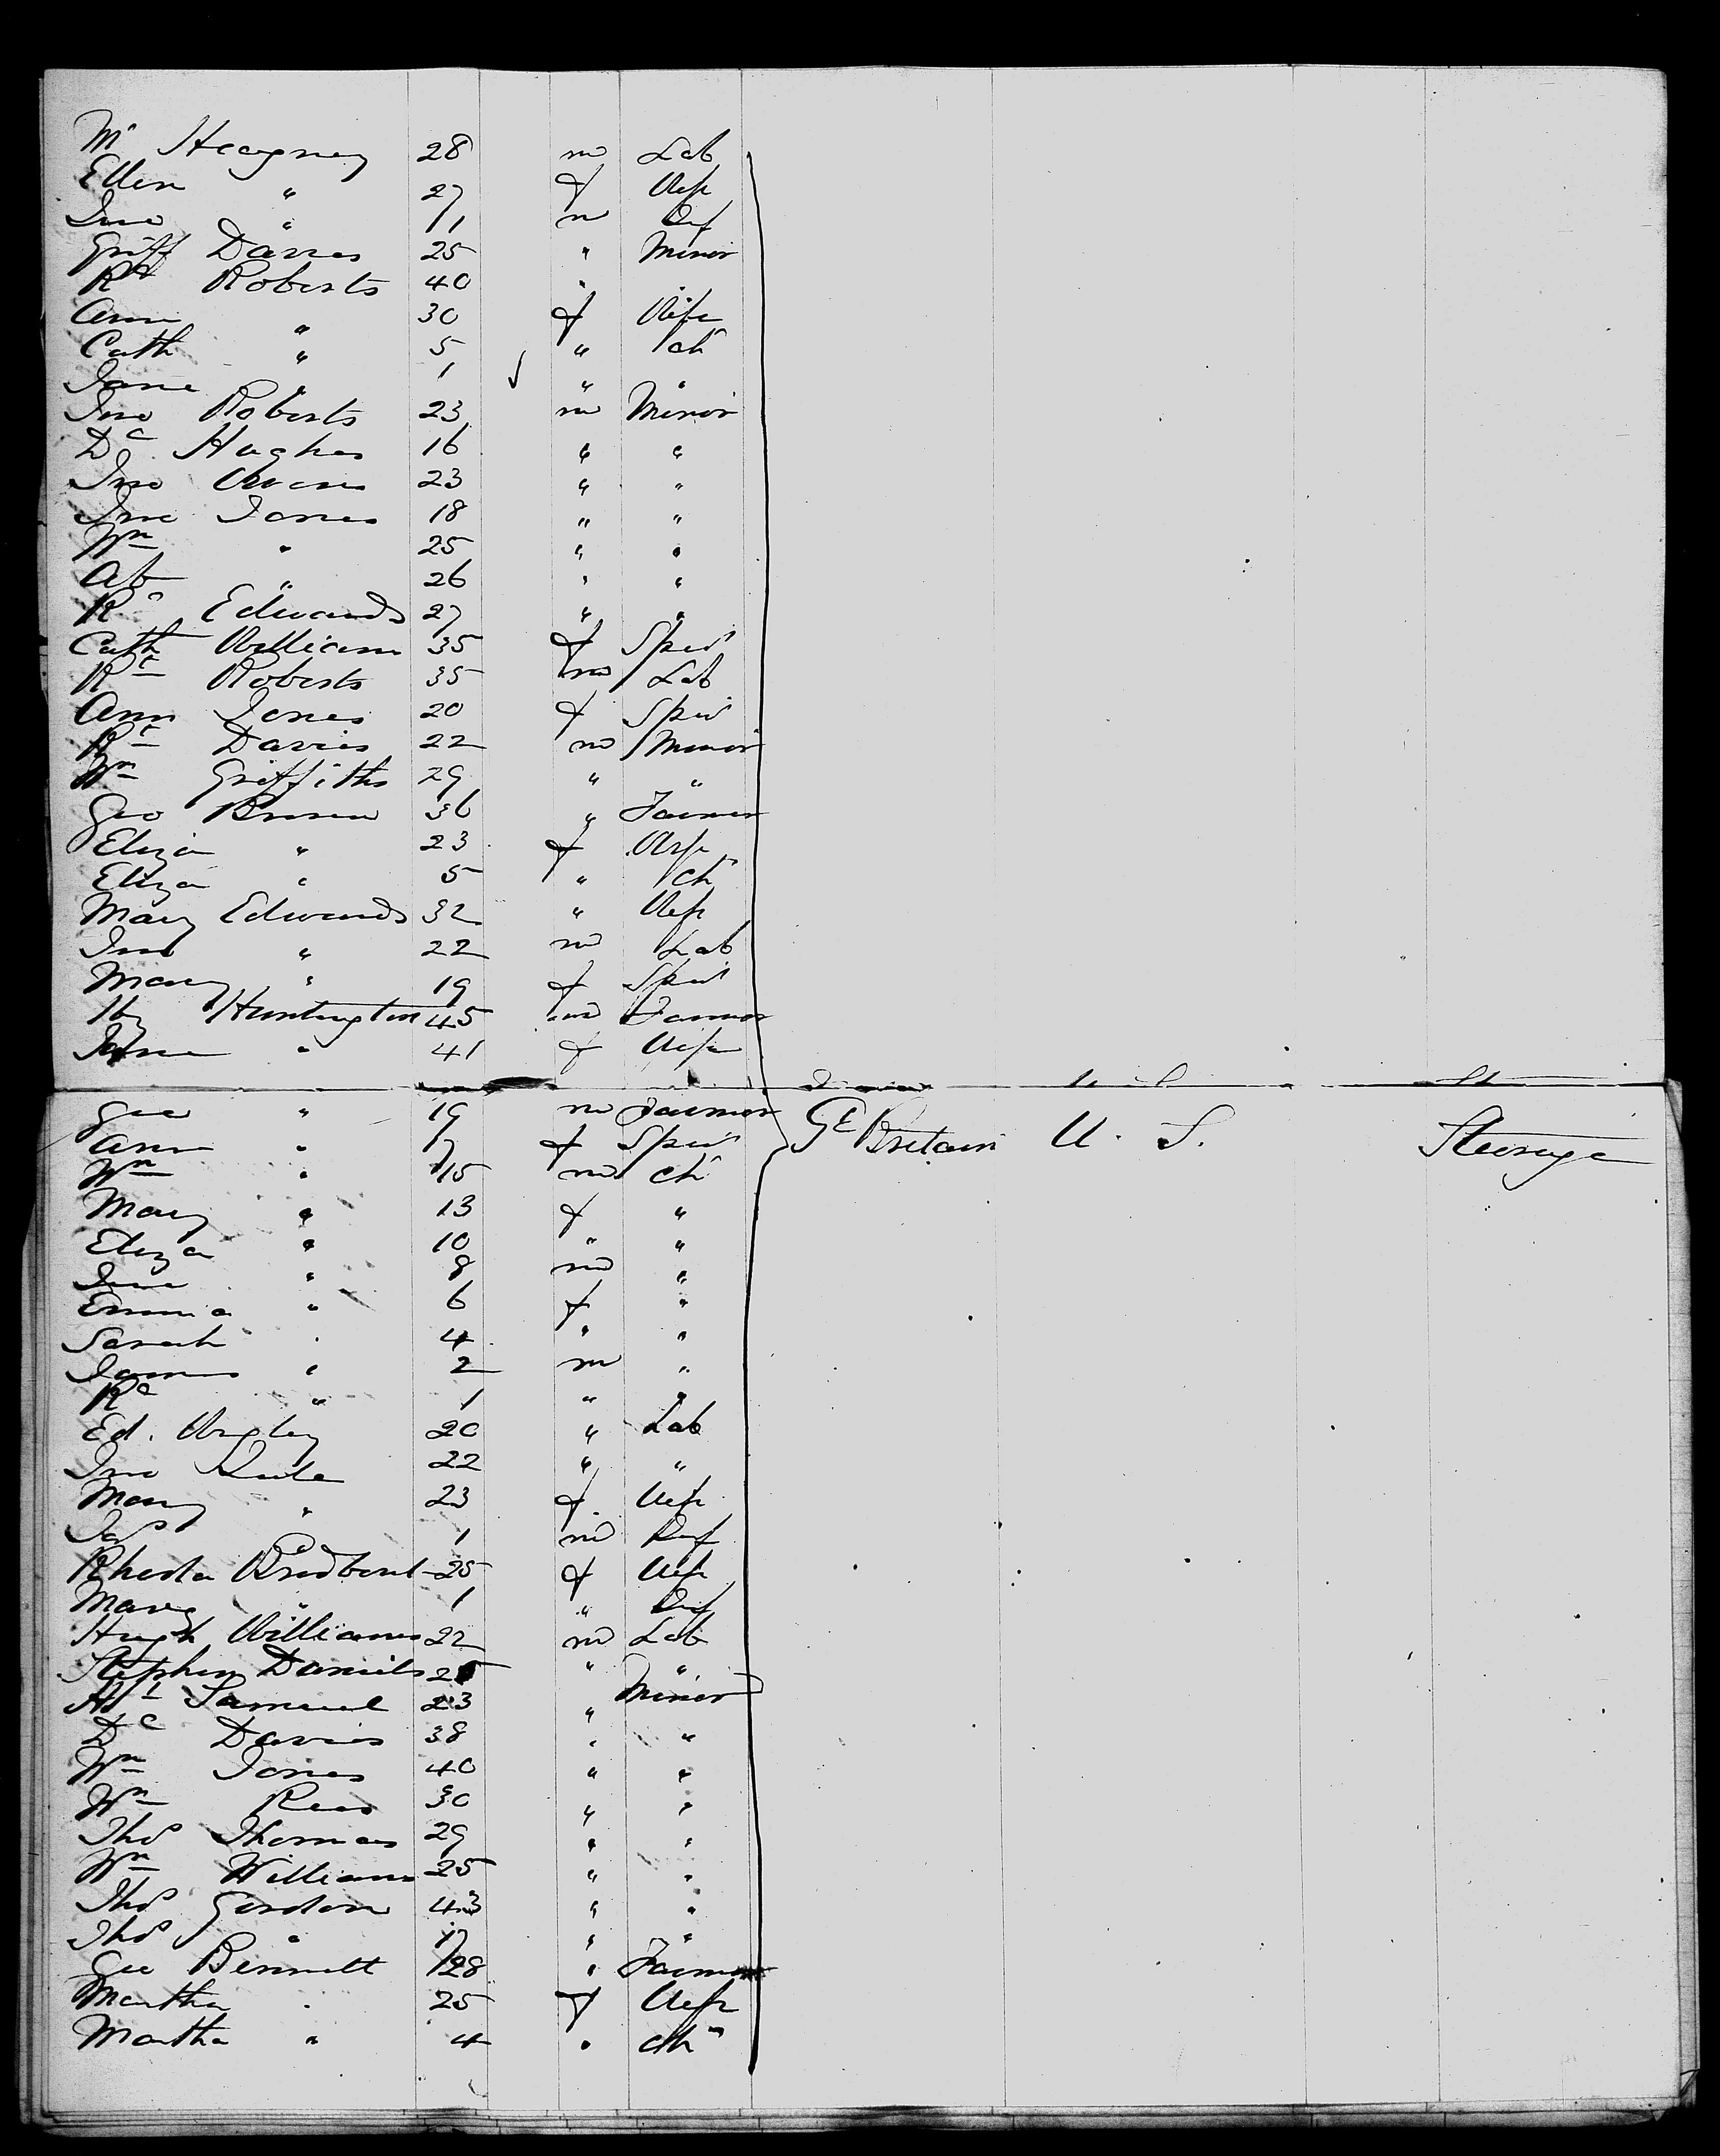 Mr Heagney 28 m Lab
Ellen " 27 f Wife
Jno " 1 m Inf
Griff Davies 25 " Minor
Rd Roberts 40 "
Ann " 30 f Wife
Cath " 5 " Ch
Jane " 1 " "
Jno Roberts 23 m Minor
Dd Hughes 16 " "
Jno Owens 23 " "
Jno Jones 18 " "
Wm " 25 " "
Ab " 26 " "
Rd Edwards 27 " "
Cath William 35 f Spin
Rt Roberts 35 m Lab
Ann Jones 20 f Spin
Rt Davies 22 m Minor
Wm Griffiths 29 " "
Geo Brown 36 " Farmer
Eliza " 23 f Wife
Eliza " 5 " Ch
Mary Edwards 32 " Wife
Jno " 22 m Lab
Mary " 19 f Spin
Hy Huntington 45 m Farmer
Jane " 41 f Wife
Geo " 19 m Farmer Gt Britain U. S. Steerage
Ann " 17 f Spin
Wm " 15 m Ch
Mary " 13 f "
Eliza " 10 " "
Jno " 8 m "
Emma " 6 f "
Sarah " 4 " "
James " 2 m "
Rd " 1 " "
Ed. Wrgley 20 " Lab
Jno 22 " "
Mary " 23 f Wife
Jas 1 m Inf
Rhoda Bredbent 25 f Wife
Mary " 1 " Inf
Hugh Williams 22 m Lab
Stephen Daniels 25 " "
Samuel 23 " Minor
Dd Davies 38 " "
Wm Jones 40 " "
Wm Rees 30 " "
Thos Thomas 29 " "
Wm William 25 " "
Thos Gordon 43 " "
Thos " 17 " "
Geo Bennett 28 " Farmer
Martha " 25 f Wife
Martha " 4 " Ch